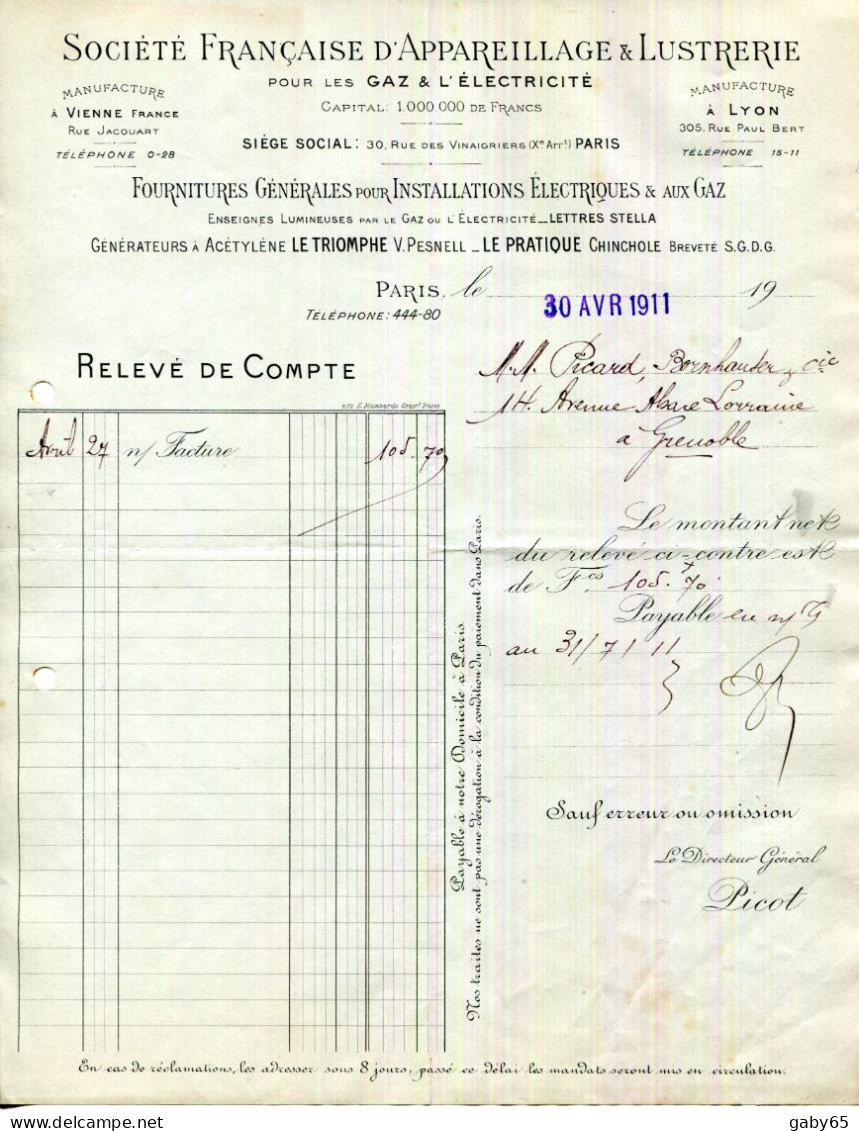 SOCIÉTÉ FRANÇAISE D'APPAREILLAGE & LUSTRERIE
POUR LES GAZ & L'ÉLECTRICITÉ
CAPITAL: 1.000.000 DE FRANCS
MANUFACTURE
À VIENNE FRANCE
RUE JACQUART
TÉLÉPHONE 0-28
MANUFACTURE
À LYON
305, RUE PAUL BERT
TÉLÉPHONE 15-11
SIÈGE SOCIAL: 30, RUE DES VINAIGRIERS (Xe ARRt) PARIS
FOURNITURES GÉNÉRALES POUR INSTALLATIONS ÉLECTRIQUES & AUX GAZ
ENSEIGNES LUMINEUSES PAR LE GAZ OU L'ÉLECTRICITÉ _ LETTRES STELLA
GÉNÉRATEURS À ACÉTYLÈNE LE TRIOMPHE V. PESNELL _ LE PRATIQUE CHINCHOLE BREVETÉ S.G.D.G.
PARIS, le 30 AVR 1911 19
TÉLÉPHONE: 444-80
RELEVÉ DE COMPTE
M.M. Picard, Bornhauser & cie
14 Avenue Alsace Lorraine
à Grenoble
Avril 27 n/ Facture 105.70
Le montant net
du relevé ci-contre est
de Fcs 105.70
Payable en n/T
au 31/7/11
Payable à notre Domicile à Paris
Nos traites ne sont pas une dérogation à la condition du paiement dans Paris.
Sauf erreur ou omission
Le Directeur Général
Picot
En cas de réclamations, les adresser sous 8 jours, passé ce délai les mandats seront mis en circulation.
gaby65